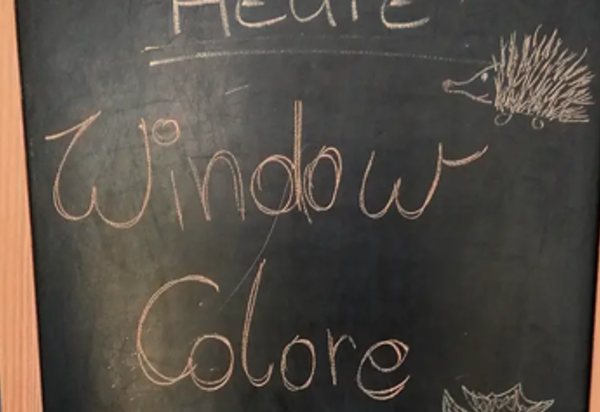 HEUTE
Window
Colore